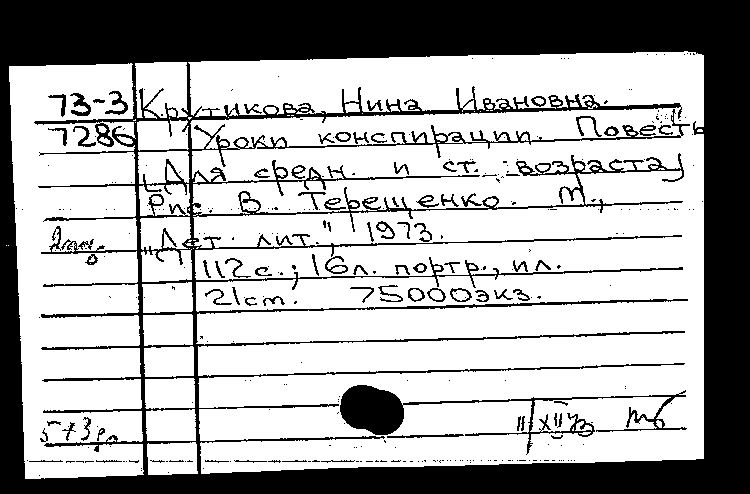 73-3 Крутикова, Нина Ивановна.
7286 Уроки конспирации. Повесть
[Для средн. и ст. возраста]
Рис. В. Терещенко. М.,
"Дет. лит.", 1973.
112 с.; 16л. портр., ил.
21см. 75000экз.